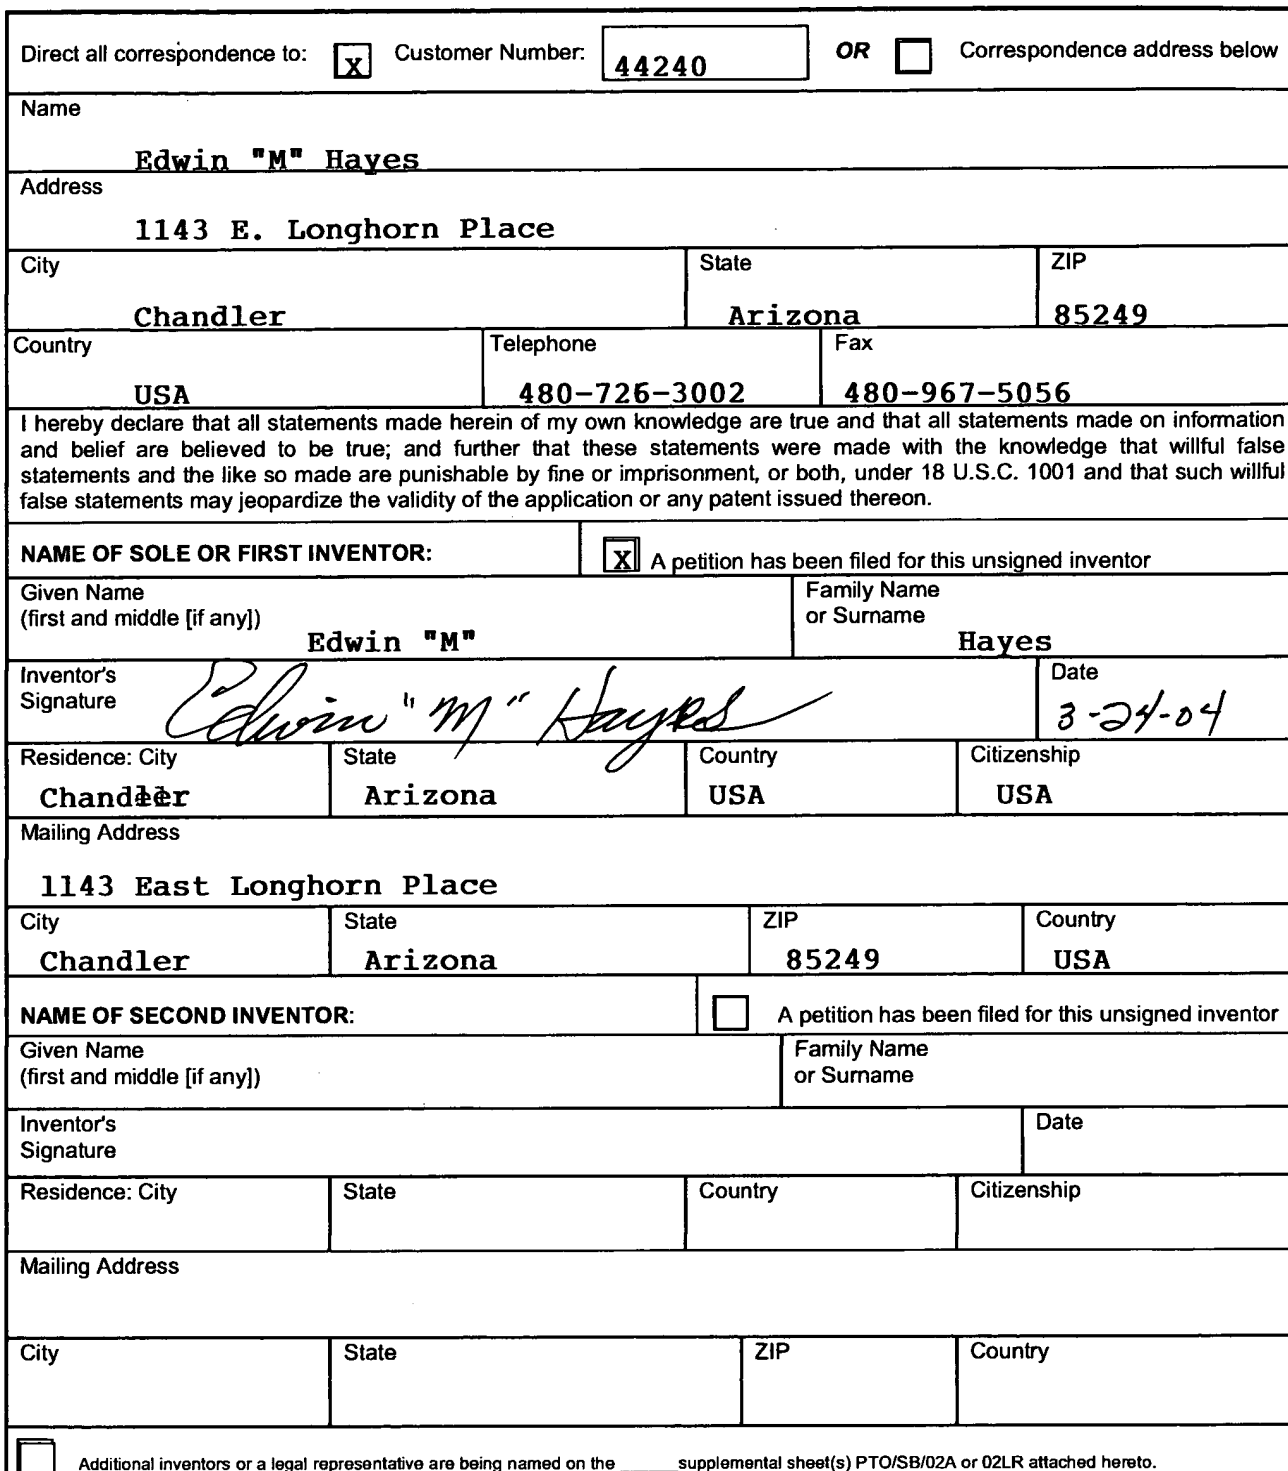 Direct all correspondence to: X Customer Number: 44240 OR Correspondence address below
Name
Edwin "M" Hayes
Address
1143 E. Longhorn Place
City State ZIP
Chandler Arizona 85249
Country Telephone Fax
USA 480-726-3002 480-967-5056
I hereby declare that all statements made herein of my own knowledge are true and that all statements made on information
and belief are believed to be true; and further that these statements were made with the knowledge that willful false
statements and the like so made are punishable by fine or imprisonment, or both, under 18 U.S.C. 1001 and that such willful
false statements may jeopardize the validity of the application or any patent issued thereon.
NAME OF SOLE OR FIRST INVENTOR: X A petition has been filed for this unsigned inventor
Given Name Family Name
(first and middle [if any]) or Surname
Edwin "M" Hayes
Inventor's Date
Signature Edwin "M" Hayes 3-24-04
Residence: City State Country Citizenship
Chandler Arizona USA USA
Mailing Address
1143 East Longhorn Place
City State ZIP Country
Chandler Arizona 85249 USA
NAME OF SECOND INVENTOR: A petition has been filed for this unsigned inventor
Given Name Family Name
(first and middle [if any]) or Surname
Inventor's Date
Signature
Residence: City State Country Citizenship
Mailing Address
City State ZIP Country
Additional inventors or a legal representative are being named on the ______ supplemental sheet(s) PTO/SB/02A or 02LR attached hereto.